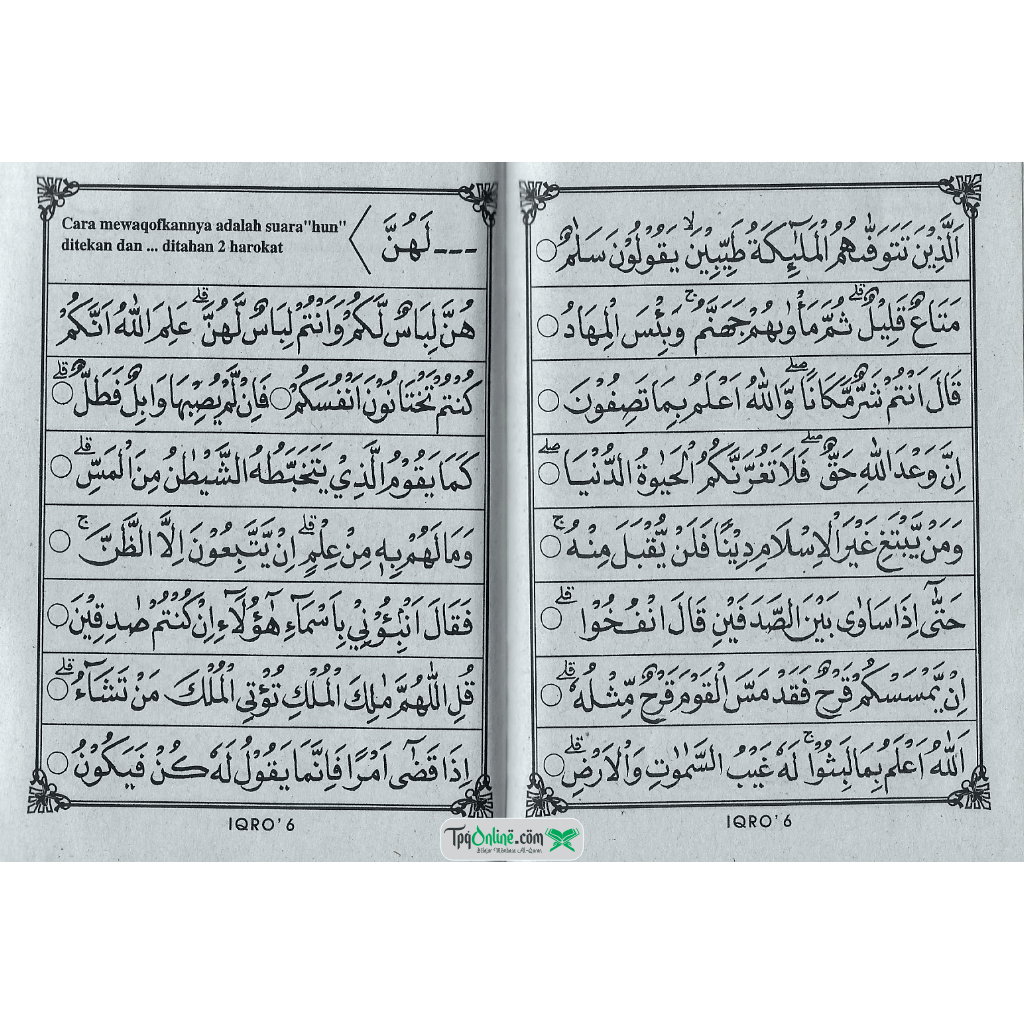 اَلَّذِيْنَ تَتَوَفّٰىهُمُ الْمَلٰۤىِٕكَةُ طَيِّبِيْنَ ۙ يَقُوْلُوْنَ سَلٰمٌ ○
مَتَاعٌ قَلِيْلٌ ۗ ثُمَّ مَأْوٰىهُمْ جَهَنَّمُ ۚ وَبِئْسَ الْمِهَادُ ○
قَالَ اَنْتُمْ شَرٌّ مَّكَانًا ۖ وَّاللّٰهُ اَعْلَمُ بِمَا تَصِفُوْنَ ○
اِنَّ وَعْدَ اللّٰهِ حَقٌّ ۖ فَلَا تَغُرَّنَّكُمُ الْحَيٰوةُ الدُّنْيَا ۖ ○
وَمَنْ يَّبْتَغِ غَيْرَ الْاِسْلَامِ دِيْنًا فَلَنْ يُّقْبَلَ مِنْهُ ۚ ○
حَتّٰىٓ اِذَا سَاوٰى بَيْنَ الصَّدَفَيْنِ قَالَ انْفُخُوْا ۗ ○
اِنْ يَّمْسَسْكُمْ قَرْحٌ فَقَدْ مَسَّ الْقَوْمَ قَرْحٌ مِّثْلُهٗ ۗ ○
اَللّٰهُ اَعْلَمُ بِمَا لَبِثُوْا ۚ لَهٗ غَيْبُ السَّمٰوٰتِ وَالْاَرْضِ ۗ ○
IQRO' 6
--- لَهُنَّ
Cara mewaqofkannya adalah suara"hun"
ditekan dan ... ditahan 2 harokat
هُنَّ لِبَاسٌ لَّكُمْ وَاَنْتُمْ لِبَاسٌ لَّهُنَّ ۗ عَلِمَ اللّٰهُ اَنَّكُمْ
كُنْتُمْ تَخْتَانُوْنَ اَنْفُسَكُمْ ○ فَاِنْ لَّمْ يُصِبْهَا وَابِلٌ فَطَلٌّ ۗ ○
كَمَا يَقُوْمُ الَّذِيْ يَتَخَبَّطُهُ الشَّيْطٰنُ مِنَ الْمَسِّ ۗ ○
وَمَا لَهُمْ بِهٖ مِنْ عِلْمٍ ۗ اِنْ يَّتَّبِعُوْنَ اِلَّا الظَّنَّ ۚ ○
فَقَالَ اَنْۢبِـُٔوْنِيْ بِاَسْمَاۤءِ هٰٓؤُلَاۤءِ اِنْ كُنْتُمْ صٰدِقِيْنَ ○
قُلِ اللّٰهُمَّ مٰلِكَ الْمُلْكِ تُؤْتِى الْمُلْكَ مَنْ تَشَاۤءُ ۗ ○
اِذَا قَضٰىٓ اَمْرًا فَاِنَّمَا يَقُوْلُ لَهٗ كُنْ فَيَكُوْنُ ○
IQRO' 6
TpqOnline.com
Belajar Membaca Al-Quran